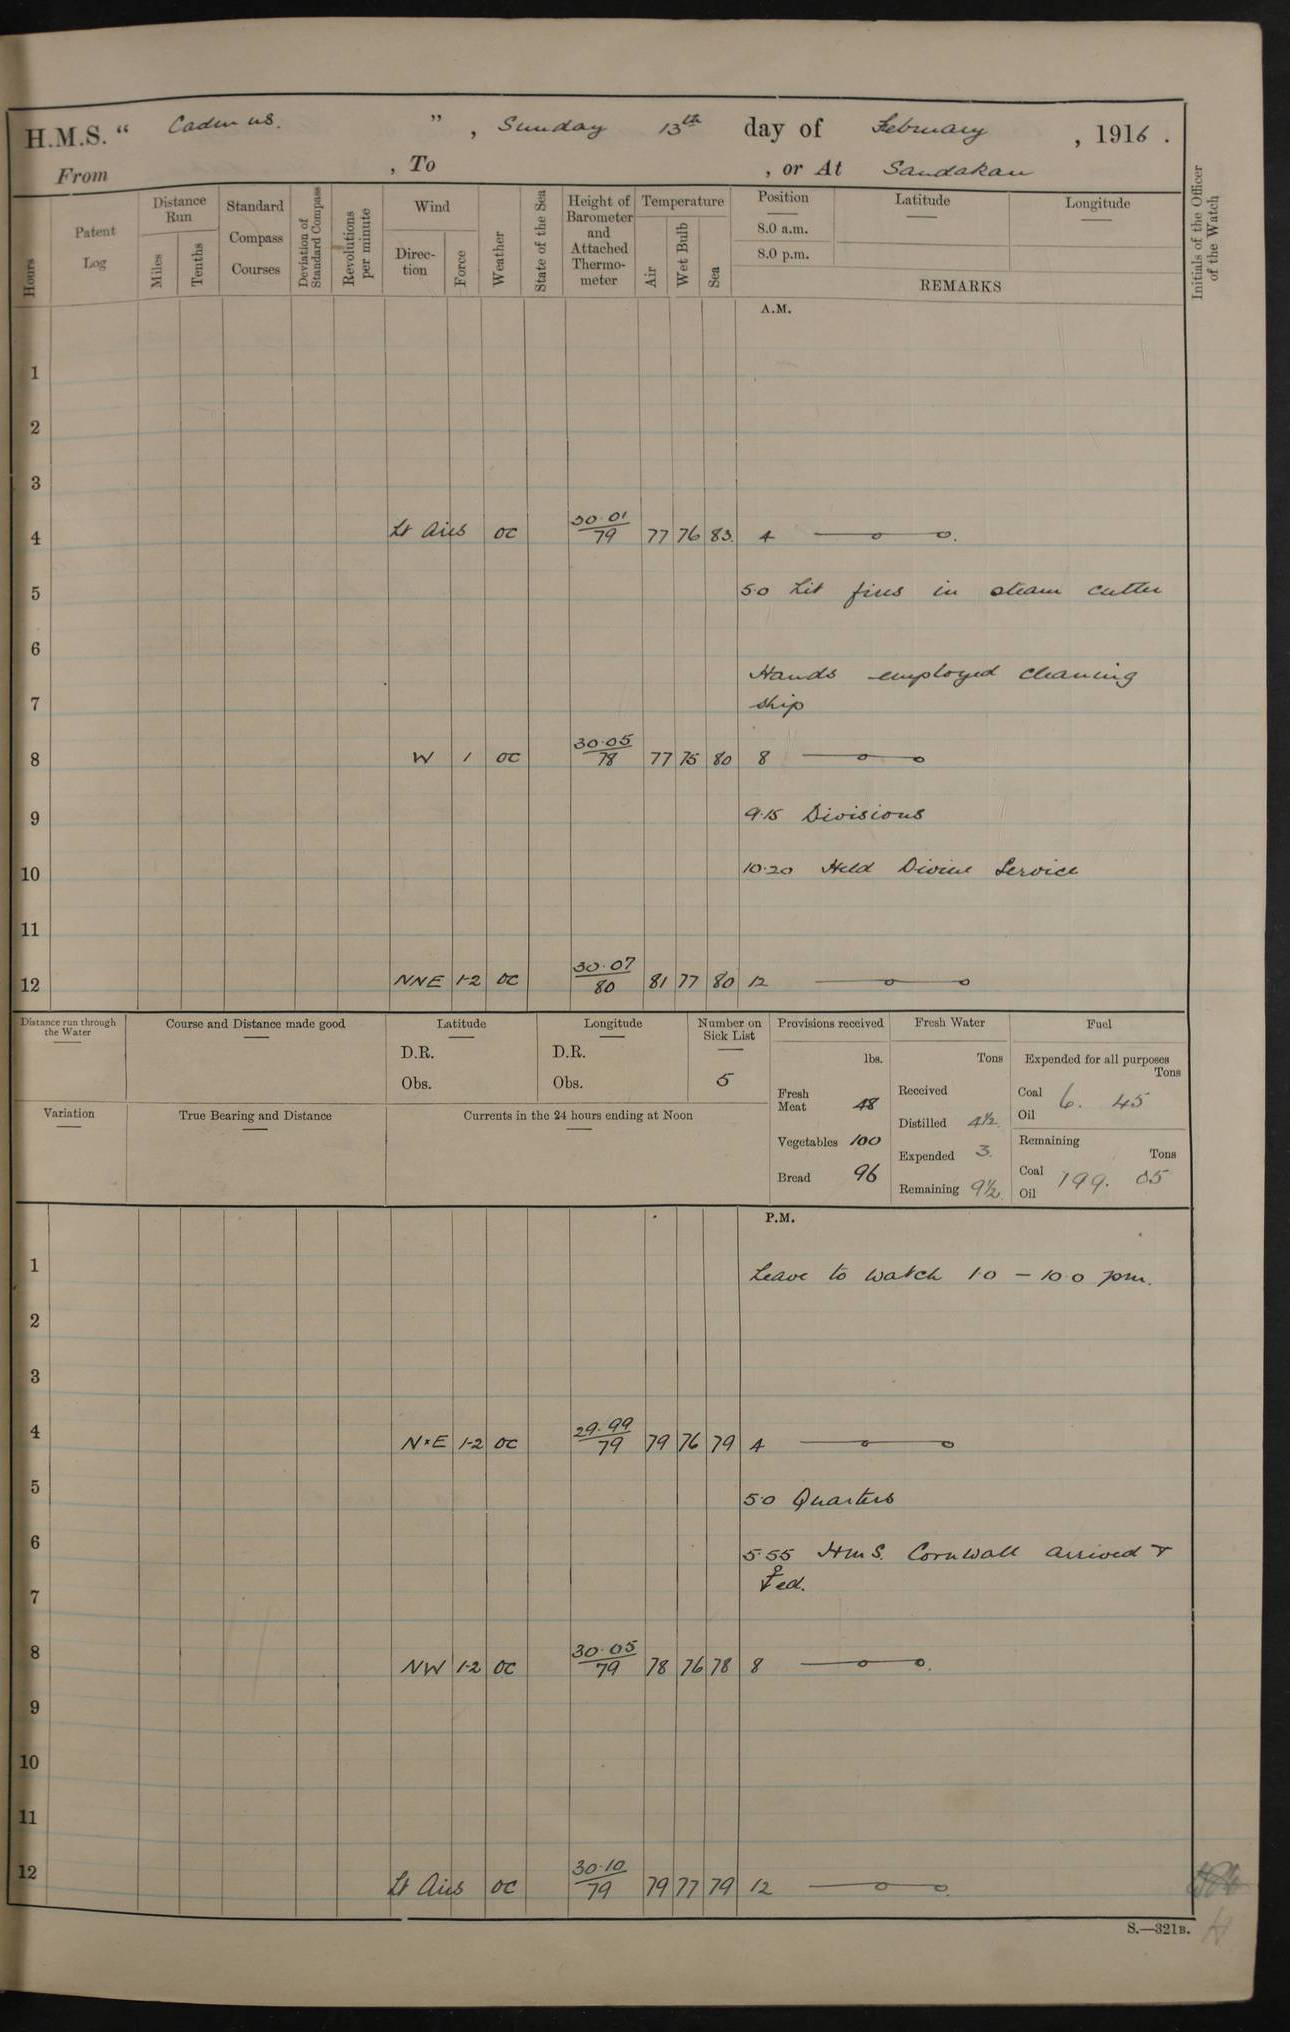 H.M.S. " Cadmus. " , Sunday 13th day of February , 1916 .
From , To , or At Sandakan
Hours
Patent Log
Distance Run
Miles
Tenths
Standard Compass Courses
Deviation of Standard Compass
Revolutions per minute
Wind
Direc-tion
Force
Weather
State of the Sea
Height of Barometer and Attached Thermo-meter
Temperature
Air
Wet Bulb
Sea
Position
8.0 a.m.
8.0 p.m.
Latitude
Longitude
REMARKS
Initials of the Officer of the Watch
A.M.
1
2
3
4 Lt Airs oc 30·01/79 77 76 83. 4
5 5·0 Lit fires in steam cutter
6
Hands employed cleaning
7 ship
8 W 1 oc 30·05/78 77 75 80 8
9 9·15 Divisions
10 10·20 Held Divine Service
11
12 NNE 1-2 oc 30·07/80 81 77 80 12
Distance run through the Water
Course and Distance made good
Latitude
D.R.
Obs.
Longitude
D.R.
Obs.
Number on Sick List
5
Provisions received
lbs.
Fresh Meat 48
Vegetables 100
Bread 96
Fresh Water
Tons
Received
Distilled 4½
Expended 3.
Remaining 9½
Fuel
Expended for all purposes
Tons
Coal 6. 45
Oil
Remaining
Tons
Coal 199. 05
Oil
Variation
True Bearing and Distance
Currents in the 24 hours ending at Noon
P.M.
1 Leave to watch 1 0 – 10 0 pm.
2
3
4 N×E 1-2 oc 29·99/79 79 76 79 4
5 5·0 Quarters
6 5·55 HMS. Cornwall arrived &
7 ⚓ed.
8 NW 1-2 oc 30·05/79 78 76 78 8
9
10
11
12 Lt Airs oc 30·10/79 79 77 79 12
S.—321B.